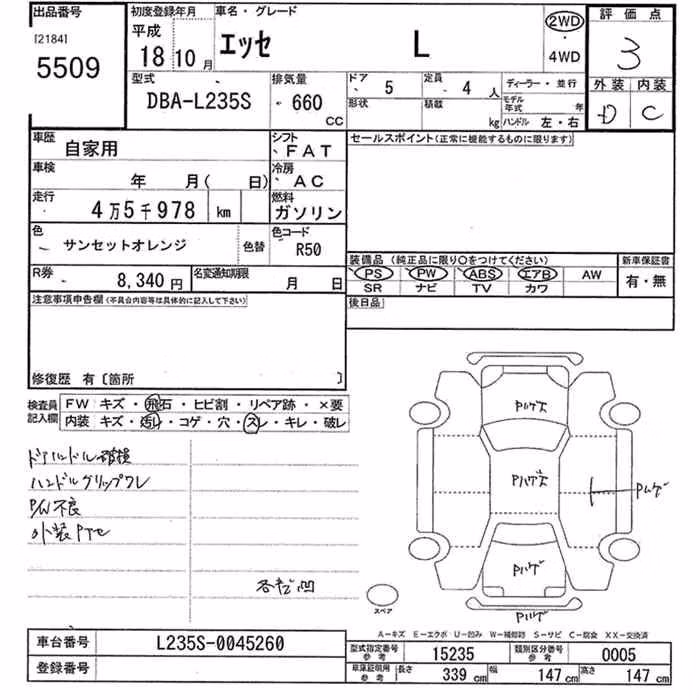 出品番号
[2184]
5509
初度登録年月
平成
18 10 月
車名・グレード
エッセ L
2WD
・
4WD
評価点
3
外装 内装
D C
型式
DBA-L235S
排気量
660
CC
ドア 5
形状
定員 4 人
積載 kg
ディーラー・並行
モデル年式 年
ハンドル 左・右
車歴
自家用
シフト
FAT
セールスポイント(正常に機能するものに限ります)
車検
年 月( 日)
冷房
AC
走行
4万5千978 km
燃料
ガソリン
色
サンセットオレンジ
色替
色コード
R50
R券 8,340 円
名変通知期限 月 日
装備品 (純正品に限り〇をつけてください)
新車保証書
PS PW ABS エアB AW
有・無
SR ナビ TV カワ
後日品
注意事項申告欄(不具合内容等は具体的に記入して下さい)
修復歴 有〔箇所 〕
検査員記入欄
FW キズ・飛石・ヒビ割・リペア跡・×要
内装 キズ・汚レ・コゲ・穴・スレ・キレ・破レ
ドアハンドル破損
ハンドルグリップワレ
P/W不良
外装PTセ
各キズ凹
Pハゲ大
Pハゲ大
Pハゲ
Pハゲ
Pハゲ
スペア
A−キズ E−エクボ U−凹み W−補修跡 S−サビ C−腐食 XX−交換済
車台番号 L235S-0045260
登録番号
型式指定番号 参考 15235
類別区分番号 参考 0005
車庫証明用 参考 長さ 339 cm 幅 147 cm 高さ 147 cm